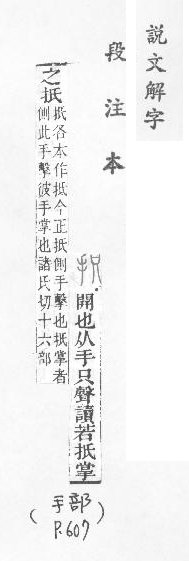 說文解字
段注本
𢪏
開也从手只聲讀若抵掌
之抵
抵各本作抵今正抵側手擊也抵掌者
側此手擊彼手掌也諸氏切十六部
(手部
P.607)